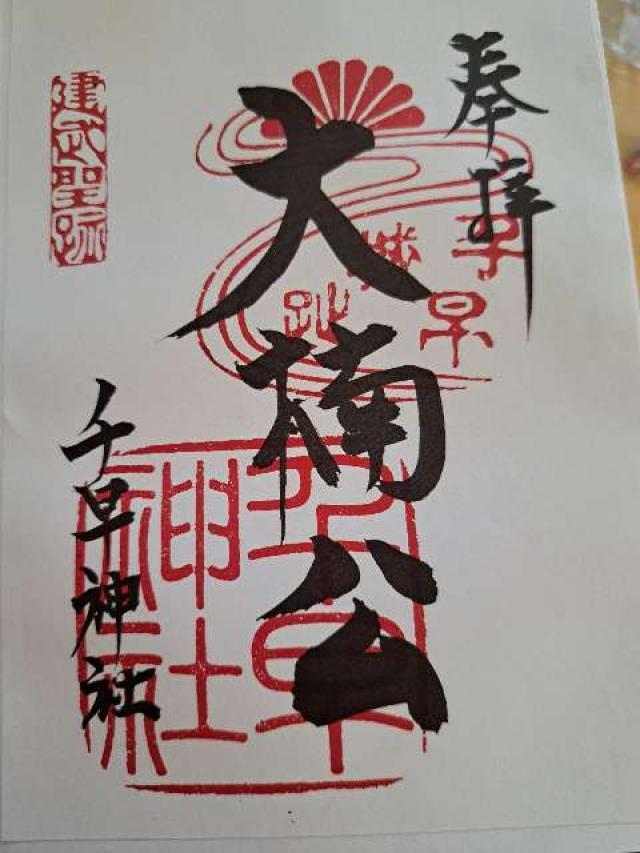 奉拝
千早
城址
大楠公
建武聖跡
千早神社
千早神社